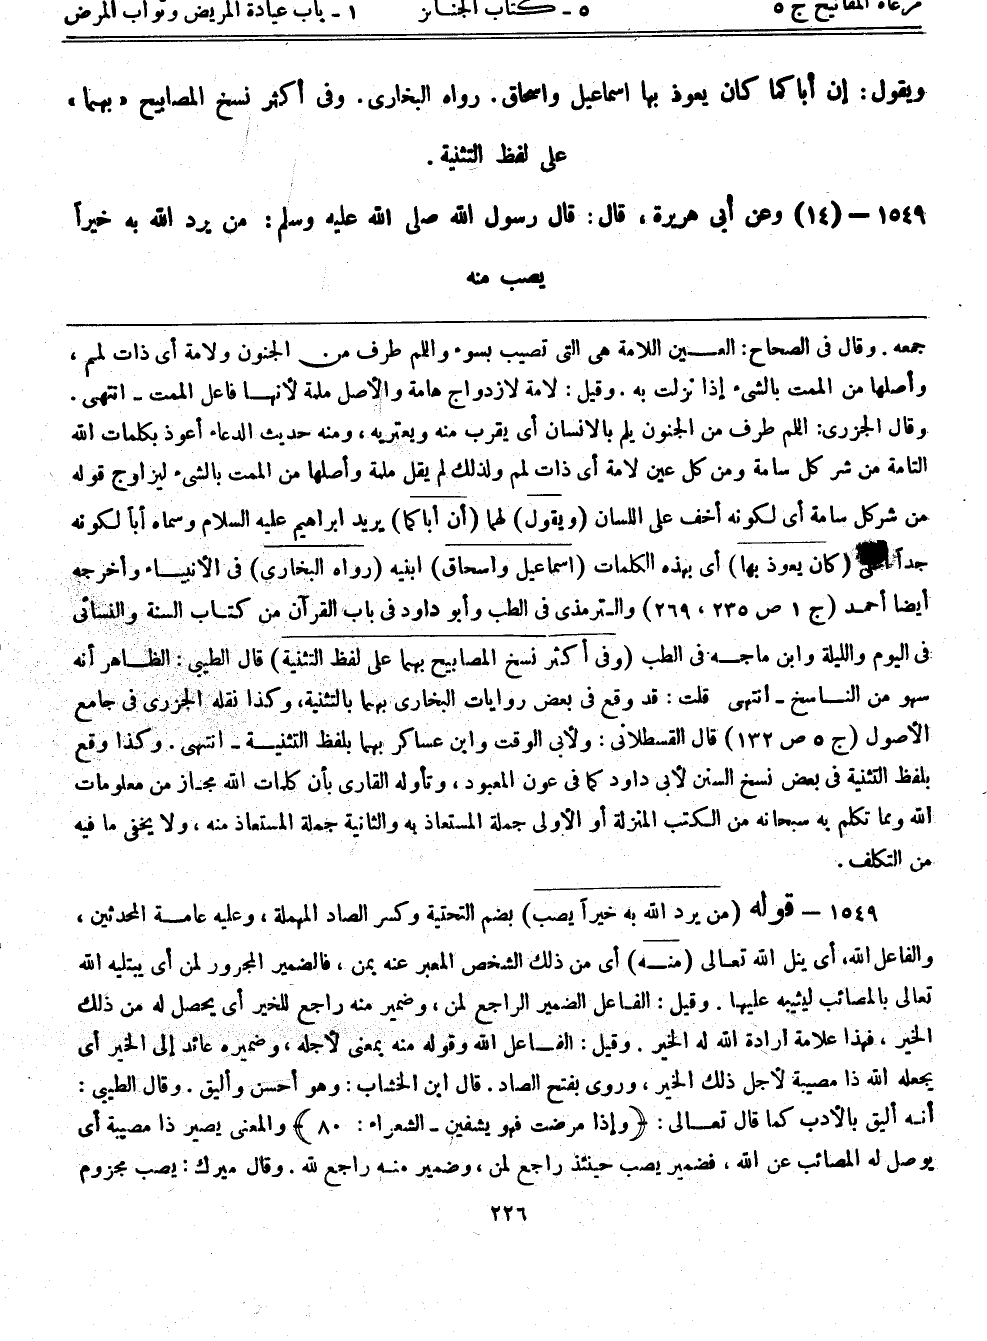 مرعاة المفاتيح ج ٥ ٥ ـ كتاب الجنائز ١ ـ باب عيادة المريض وثواب المرض
ويقول: إن أباكما كان يعوذ بها اسماعيل واسحاق. رواه البخارى. وفى أكثر نسخ المصابيح «بهما»
على لفظ التثنية.
١٥٤٩ – (١٤) وعن أبى هريرة، قال: قال رسول الله صلى الله عليه وسلم: من يرد الله به خيراً
يصب منه
جمعه. وقال فى الصحاح: العين اللامة هى التى تصيب بسوء واللم طرف من الجنون ولامة أى ذات لمم،
وأصلها من الممت بالشىء إذا نزلت به. وقيل: لامة لازدواج هامة والأصل ملمة لأنها فاعل الممت ـ انتهى.
وقال الجزرى: اللم طرف من الجنون يلم بالانسان أى يقرب منه ويعتريه، ومنه حديث الدعاء أعوذ بكلمات الله
التامة من شر كل سامة ومن كل عين لامة أى ذات لمم ولذلك لم يقل ملمة وأصلها من الممت بالشىء ليزاوج قوله
من شركل سامة أى لكونه أخف على اللسان (ويقول) لهما (أن أباكما) يريد ابراهيم عليه السلام وسماه أبا لكونه
جداً (كان يعوذ بها) أى بهذه الكلمات (اسماعيل واسحاق) ابنيه (رواه البخارى) فى الأنبياء وأخرجه
أيضا أحمد (ج ١ ص ٢٣٥، ٢٦٩) والترمذى فى الطب وأبو داود فى باب القرآن من كتاب السنة والنسائى
فى اليوم والليلة وابن ماجه فى الطب (وفى أكثر نسخ المصابيح بهما على لفظ التثنية) قال الطيبى: الظاهر أنه
سهو من الناسخ ـ انتهى قلت: قد وقع فى بعض روايات البخارى بهما بالتثنية، وكذا نقله الجزرى فى جامع
الأصول (ج ٥ ص ١٣٢) قال القسطلانى: ولأبى الوقت وابن عساكر بهما بلفظ التثنية ـ انتهى. وكذا وقع
بلفظ التثنية فى بعض نسخ السنن لأبى داود كما فى عون المعبود، وتأوله القارى بأن كلمات الله مجاز من معلومات
الله ومما تكلم به سبحانه من الكتب المنزلة أو الأولى جملة المستعاذ به والثانية جملة المستعاذ منه، ولا يخفى ما فيه
من التكلف.
١٥٤٩ – قوله (من يرد الله به خيراً يصب) بضم التحتية وكسر الصاد المهملة، وعليه عامة المحدثين،
والفاعل الله، أى ينل الله تعالى (منه) أى من ذلك الشخص المعبر عنه بمن، فالضمير المجرور لمن أى يبتليه الله
تعالى بالمصائب ليثيبه عليها. وقيل: الفاعل الضمير الراجع لمن، وضمير منه راجع للخير أى يحصل له من ذلك
الخير، فهذا علامة أرادة الله له الخير. وقيل: الفاعل الله وقوله منه بمعنى لأجله، وضميره عائد إلى الخير أى
يجعله الله ذا مصيبة لأجل ذلك الخير، وروى بفتح الصاد. قال ابن الخشاب: وهو أحسن وأليق. وقال الطيبى:
أنه أليق بالأدب كما قال تعالى: ﴿وإذا مرضت فهو يشفين ـ الشعراء: ٨٠﴾ والمعنى يصير ذا مصيبة أى
يوصل له المصائب عن الله، فضمير يصب حينئذ راجع لمن، وضمير منه راجع لله. وقال ميرك: يصب مجزوم
٢٢٦